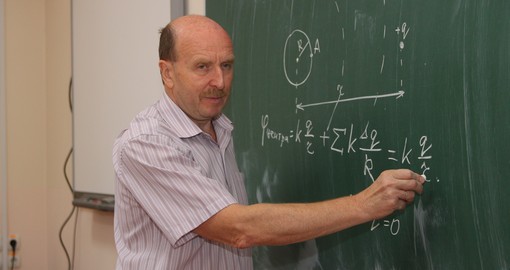 R A +q
r
φцентра = k q/r + Σ k Δq/R = k q/r.
= 0